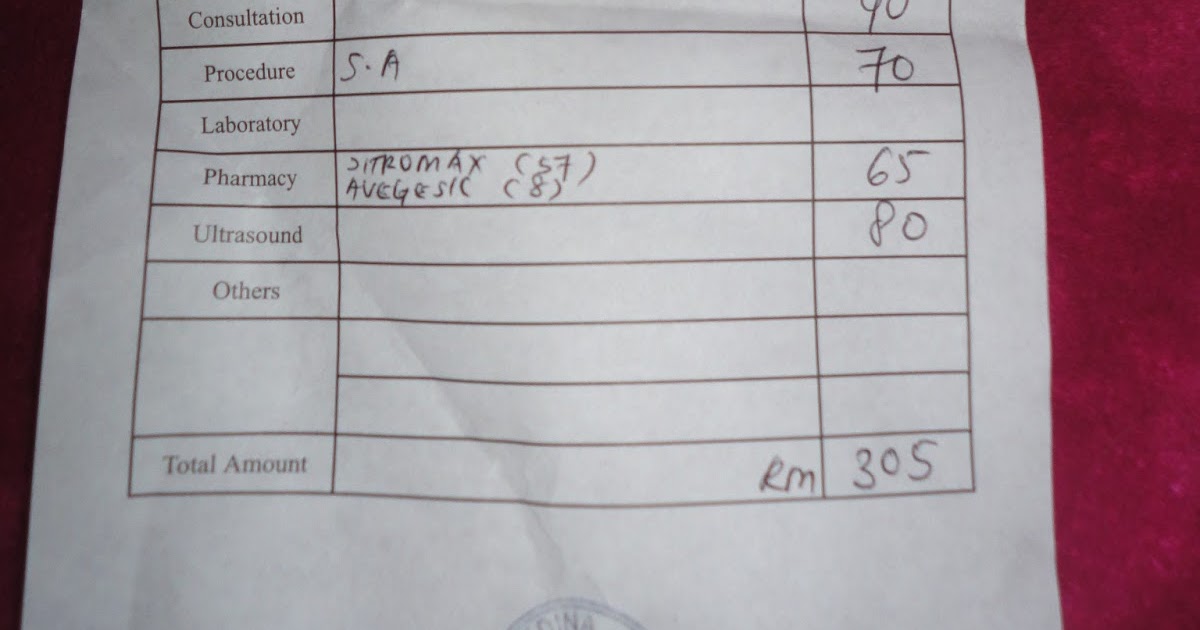 Consultation 90
Procedure S.A 70
Laboratory
Pharmacy SITROMAX (57) 65
AVEGESIC (8)
Ultrasound 80
Others
Total Amount Rm 305